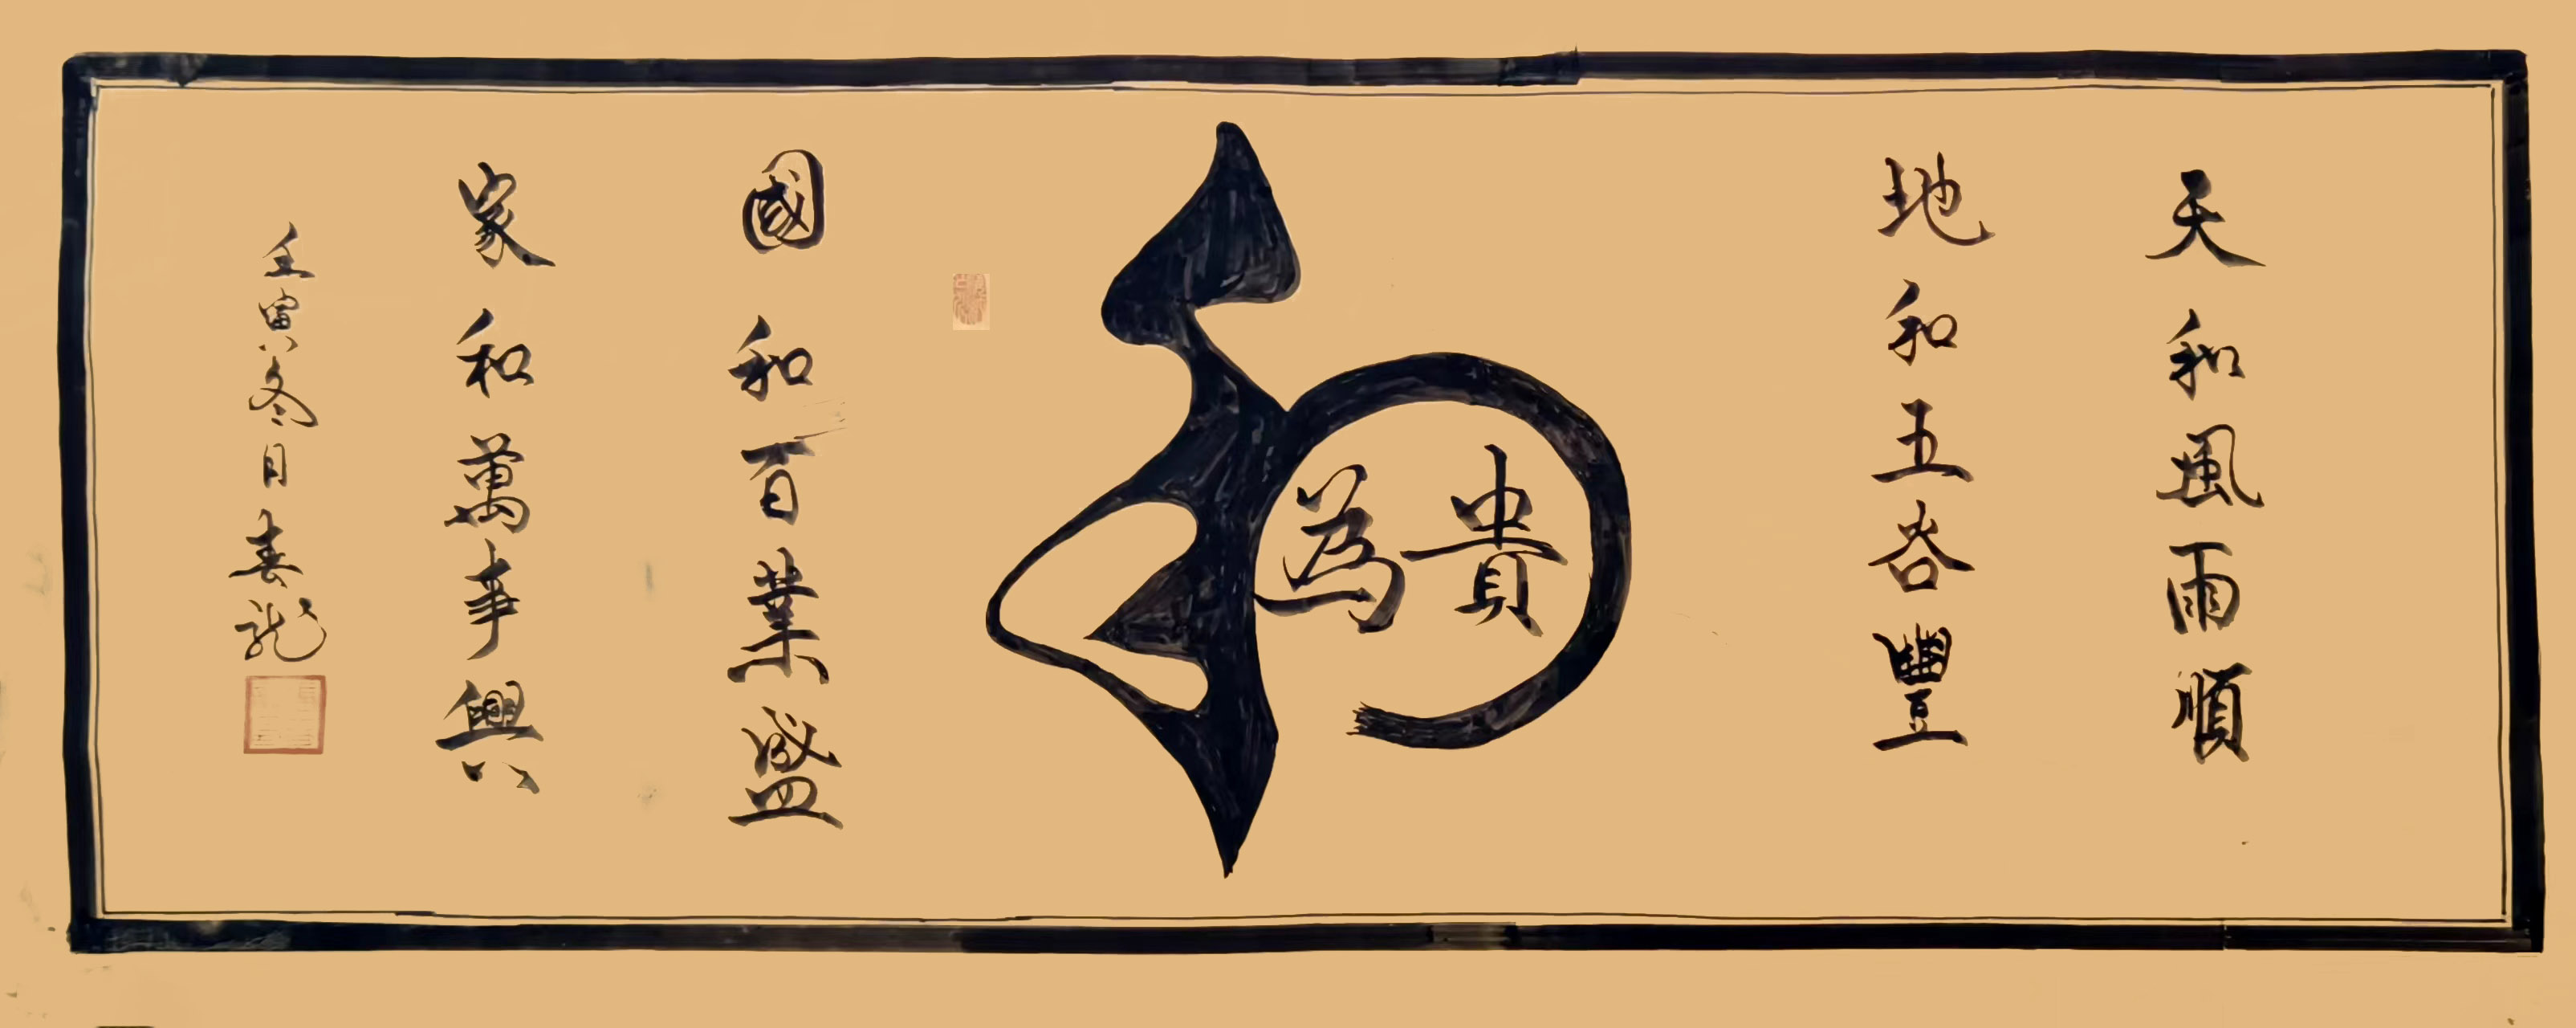 天和風雨順
地和五谷豐
和
為貴
國和百業盛
家和萬事興
壬寅冬月春龍